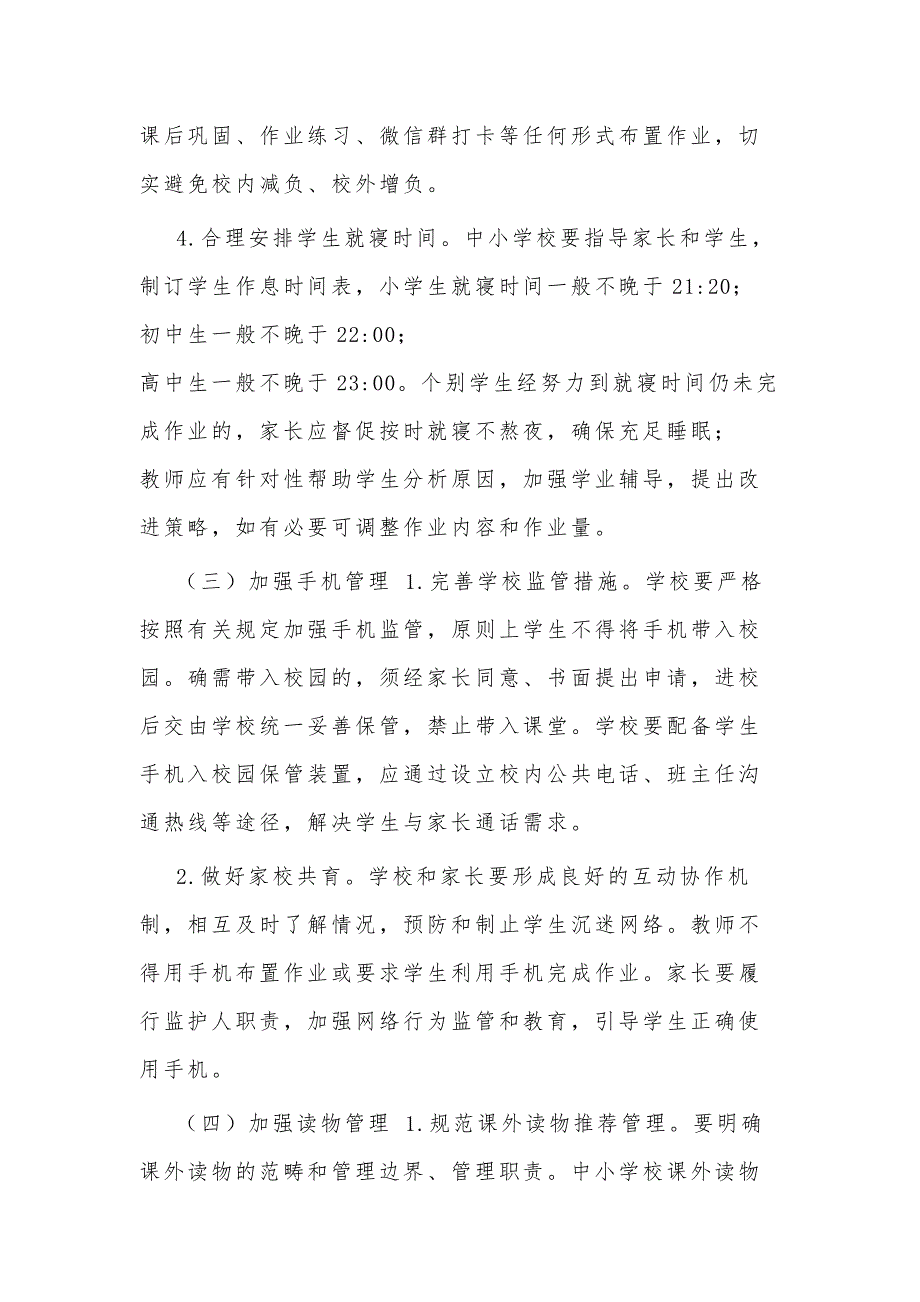 课后巩固、作业练习、微信群打卡等任何形式布置作业，切
实避免校内减负、校外增负。
4.合理安排学生就寝时间。中小学校要指导家长和学生，
制订学生作息时间表，小学生就寝时间一般不晚于 21:20；
初中生一般不晚于 22:00；
高中生一般不晚于 23:00。个别学生经努力到就寝时间仍未完
成作业的，家长应督促按时就寝不熬夜，确保充足睡眠；
教师应有针对性帮助学生分析原因，加强学业辅导，提出改
进策略，如有必要可调整作业内容和作业量。
（三）加强手机管理 1.完善学校监管措施。学校要严格
按照有关规定加强手机监管，原则上学生不得将手机带入校
园。确需带入校园的，须经家长同意、书面提出申请，进校
后交由学校统一妥善保管，禁止带入课堂。学校要配备学生
手机入校园保管装置，应通过设立校内公共电话、班主任沟
通热线等途径，解决学生与家长通话需求。
2.做好家校共育。学校和家长要形成良好的互动协作机
制，相互及时了解情况，预防和制止学生沉迷网络。教师不
得用手机布置作业或要求学生利用手机完成作业。家长要履
行监护人职责，加强网络行为监管和教育，引导学生正确使
用手机。
（四）加强读物管理 1.规范课外读物推荐管理。要明确
课外读物的范畴和管理边界、管理职责。中小学校课外读物